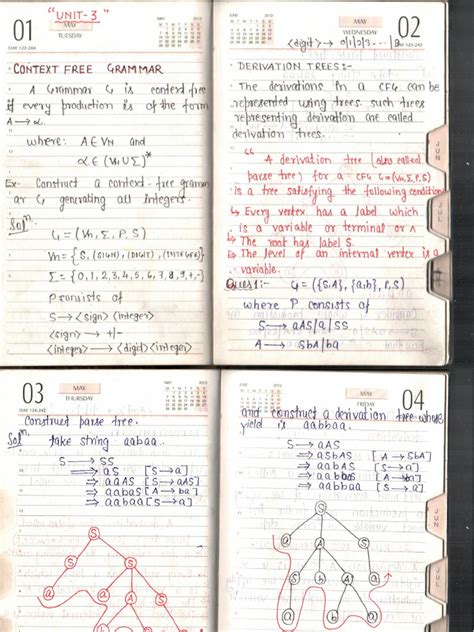 "UNIT-3"
01
MAY
TUESDAY
DAY 122-244
CONTEXT FREE GRAMMAR
A Grammar G is context free
if every production is of the form
A → α.
where: A ∈ VN and
α ∈ (VN ∪ Σ)*
Ex- Construct a context-free gramm
ar G generating all integers.
Solⁿ
G = (VN, Σ, P, S)
VN = { S, ⟨SIGN⟩, ⟨DIGIT⟩, ⟨INTEGER⟩}
Σ = {0, 1, 2, 3, 4, 5, 6, 7, 8, 9, +, -}
P consists of
S → ⟨sign⟩ ⟨integer⟩
⟨sign⟩ → +/-
⟨integer⟩ → ⟨digit⟩ ⟨integer⟩
⟨digit⟩ → 0|1|2|3...
02
MAY
WEDNESDAY
DAY 123-243
DERIVATION TREES :-
The derivations in a CFG can be
represented using trees such trees
representing derivation are called
derivation trees.
A derivation tree (also called
parse tree) for a CFG G = (VN, Σ, P, S)
is a tree satisfying the following condition
↳ Every vertex has a label which
is a variable or terminal or Λ
↳ The root has label S.
↳ The level of an internal vertex is a
variable.
Quest:- G = ({S, A}, {a, b}, P, S)
where P consists of
S → aAS|a|SS
A → SbA|ba
JUN
JUL
03
MAY
THURSDAY
Construct parse tree.
Solⁿ take string aabaa.
S → SS
⇒ aS [S → a]
⇒ aaAS [S → aAS]
⇒ aabaS [A → ba]
⇒ aabaa [S → a]
S
S
S
a
a
A
S
b
a
a
04
MAY
FRIDAY
and construct a derivation tree whose
yield is aabbaa.
S → aAS
⇒ aSbAS [A → SbA]
⇒ aabAS [S → a]
⇒ aabbaS [A → ba]
⇒ aabbaa [S → a]
S
a
A
S
S
b
A
a
a
b
a
JUN
JUL